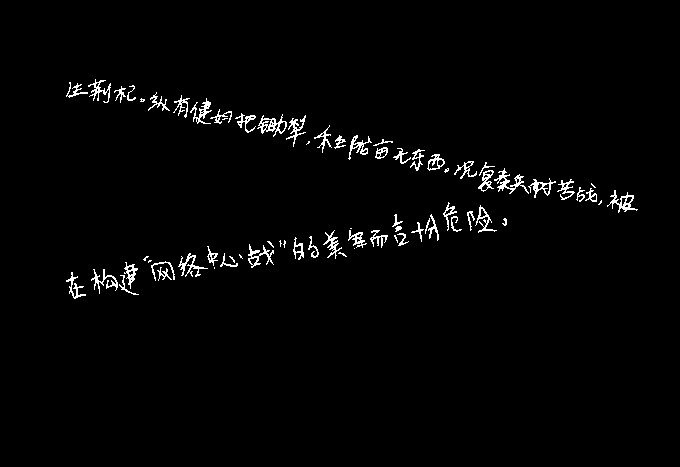 生荆杞。纵有健妇把锄犁,禾生陇亩无东西。况复秦兵耐苦战,被
在构建“网络中心战”的美军而言十分危险。